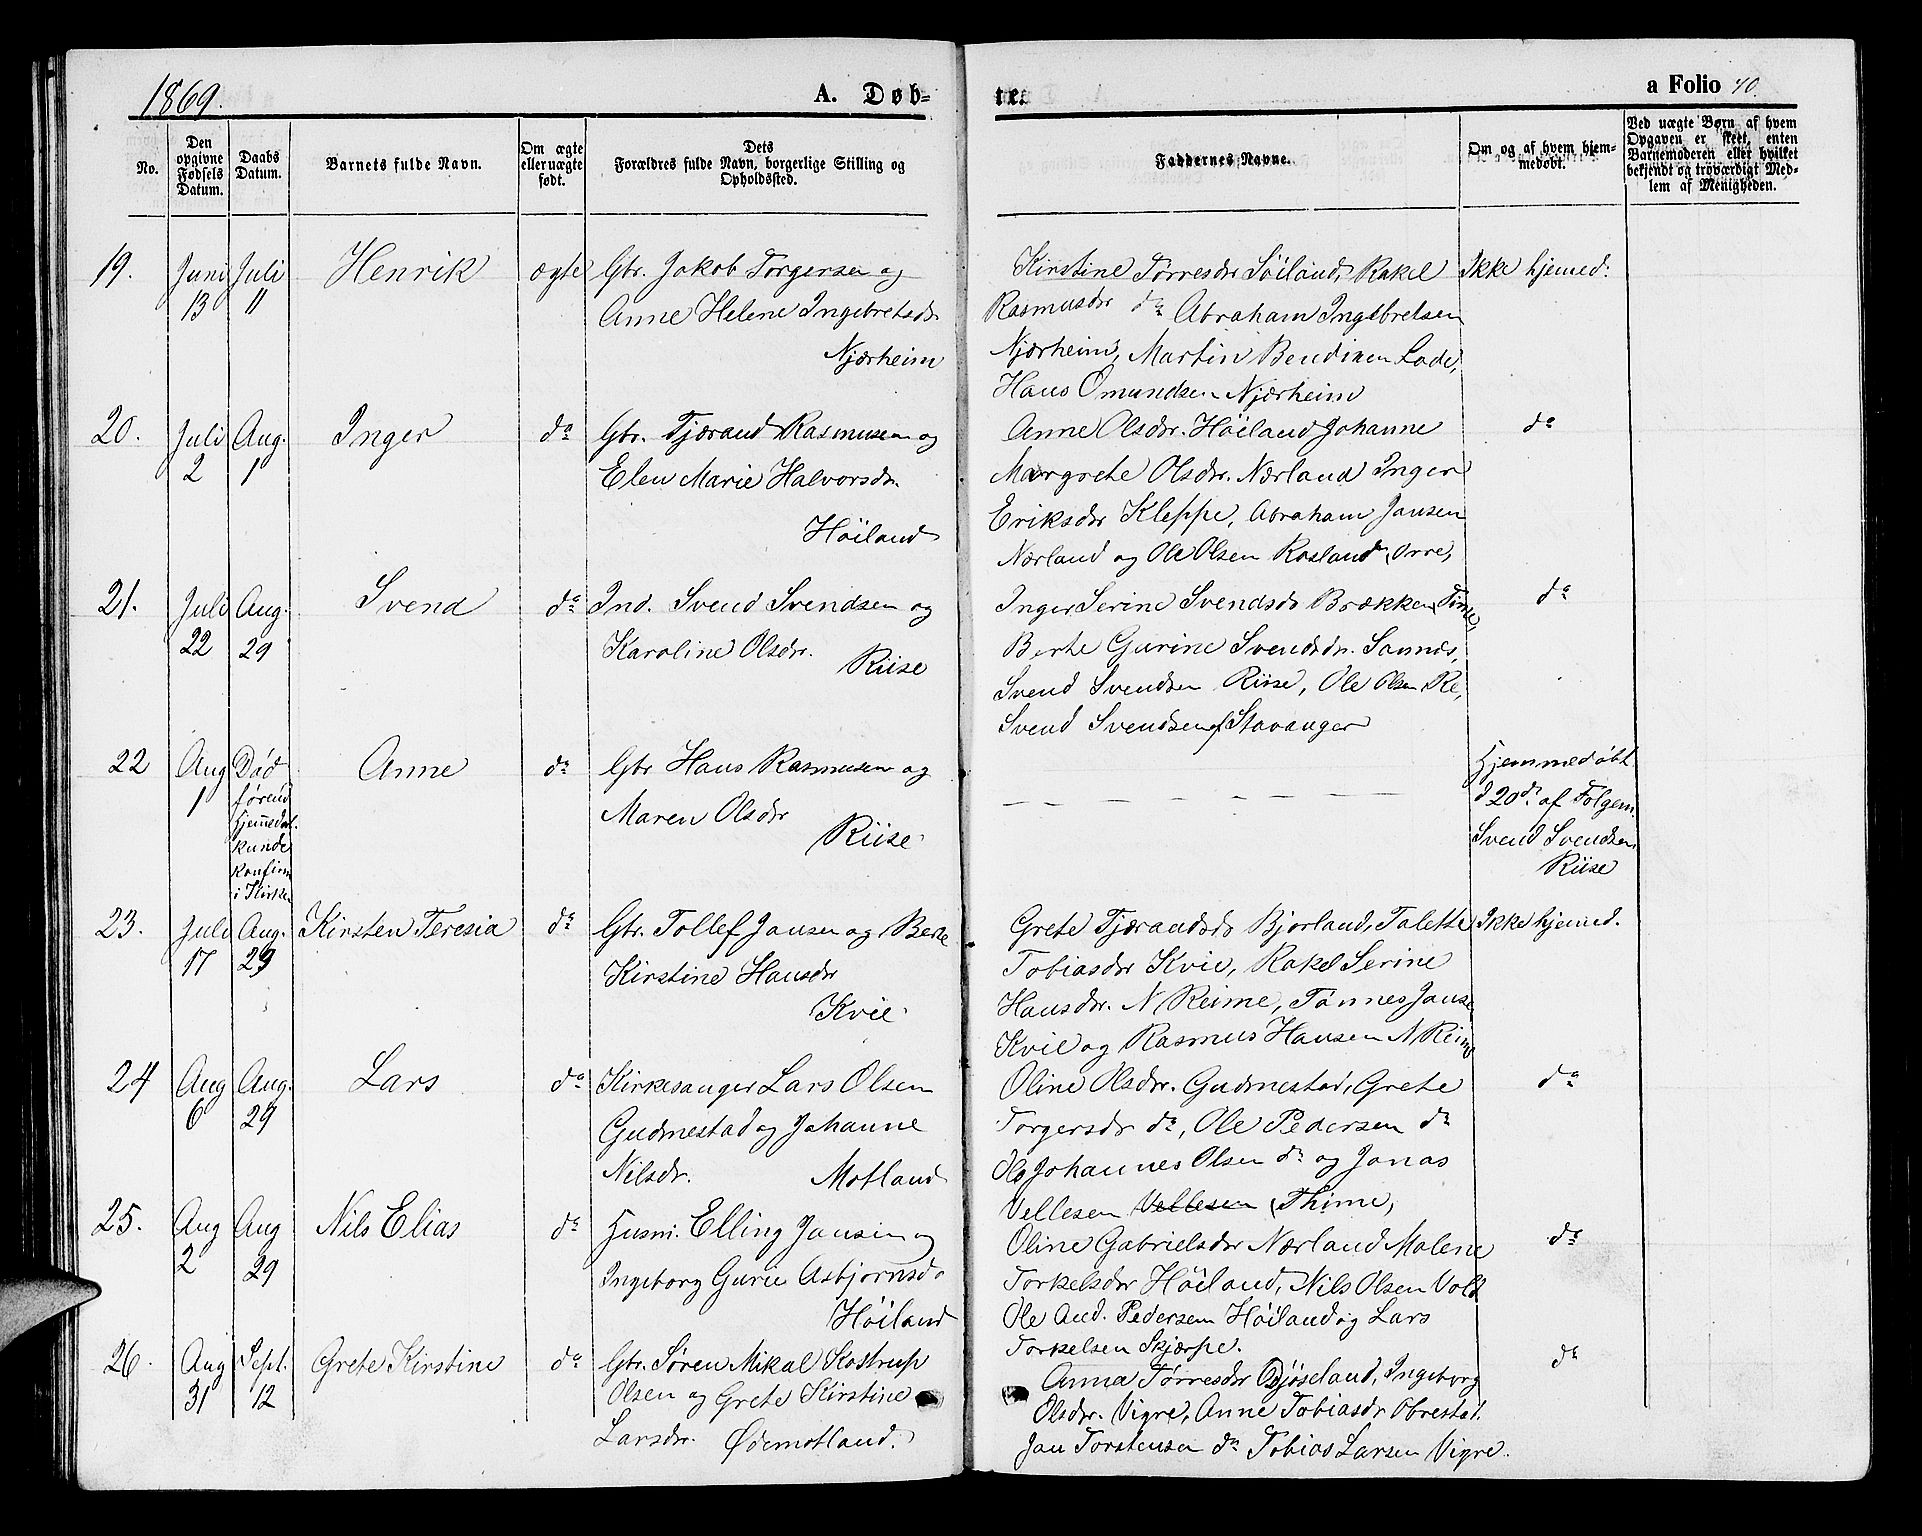 1869.
A. Døb-
te.
a Folio 40.
No.
Den opgivne Fødsels Datum.
Daabs Datum.
Barnets fulde Navn.
Om ægte eller uægte født.
Dets Forældres fulde Navn, borgerlige Stilling og Opholdssted.
Faddernes Navne.
Om og af hvem hjemmedøbt.
Ved uægte Børn af hvem Opgaven er skeet, enten Barnemoderen eller hvilket bekjendt og troværdigt Medlem af Menigheden.
19.
Juni 13
Juli 11
Henrik
ægte
Gbr. Jakob Torgersen og
Anne Helene Ingebretsdr.
Njærheim
Kirstine Tørresdr Söiland, Rakel
Rasmusdr do Abraham Ingebretsen
Njærheim, Martin Bendixen Lode,
Hans Omundsen Njærheim
Ikke hjemed:
20.
Juli 2
Aug. 1
Inger
do
Gbr. Tjærand Rasmusen og
Elen Marie Halvorsdr.
Höiland
Anne Olsdr. Höiland Johanne
Margrete Olsdr. Nærland Inger
Eriksdr Kleppe, Abraham Jansen
Nærland og Ole Olsen Rosland, Orre,
do
21.
Juli 22
Aug. 29
Svend
do
Ind. Svend Svendsen og
Karoline Olsdr.
Riise
Inger Serine Svendsdr Brækken, Time,
Berte Gurine Svendsdr. Sannes,
Svend Svendsen Riise, Ole Olsen Re,
Svend Svendsen af Stavanger
do
22
Aug 1
Död
førend
Hjemedøb.
kunde
konfirm
i Kirken
Anne
do
Gbr Hans Rasmusen og
Maren Olsdr
Riise
Hjemmedøbt
d 20de af Folgem.
Svend Svendsen
Riise
23.
Juli 17
Aug. 29
Kirsten Teresia
do
Gbr. Tollef Jansen og Berte
Kirstine Hansdr
Kvie
Grete Tjærandsdr Bjorland, Talette
Tobiasdr Kvie, Rakel Serine
Hansdr. N Reime, Tönnes Janse
Kvie og Rasmus Hansen N Reime
Ikke hjemed.
24
Aug 6
Aug. 29
Lars
do
Kirkesanger Lars Olsen
Gudmestad og Johanne
Nilsdr. Motland
Oline Olsdr. Gudmestad, Grete
Torgersdr do, Ole Pedersen do
Johannes Olsen do og Jonas
Vellesen Vellesen (Thime,
do
25.
Aug 2
Aug 29
Nils Elias
do
Husm. Elling Jansen og
Ingeborg Gurie Asbjornsdr
Höiland
Oline Gabrielsdr Nærland Malene
Torkelsdr Höiland, Nils Olsen Vold
Ole And. Pedersen Höiland og Lars
Torkelsen Skjærpe.
do
26.
Aug 31
Sept. 12
Grete Kirstine
do
Gbr. Søren Mikal Kostrup
Olsen og Grete Kirstine
Larsdr. Ødemotland.
Anna Tørresdr Ingeborg
Olsdr. Vigre, Anne Tobiasdr Obrestad.
Jan Torstensen do Tobias Larsen Vigre.
do